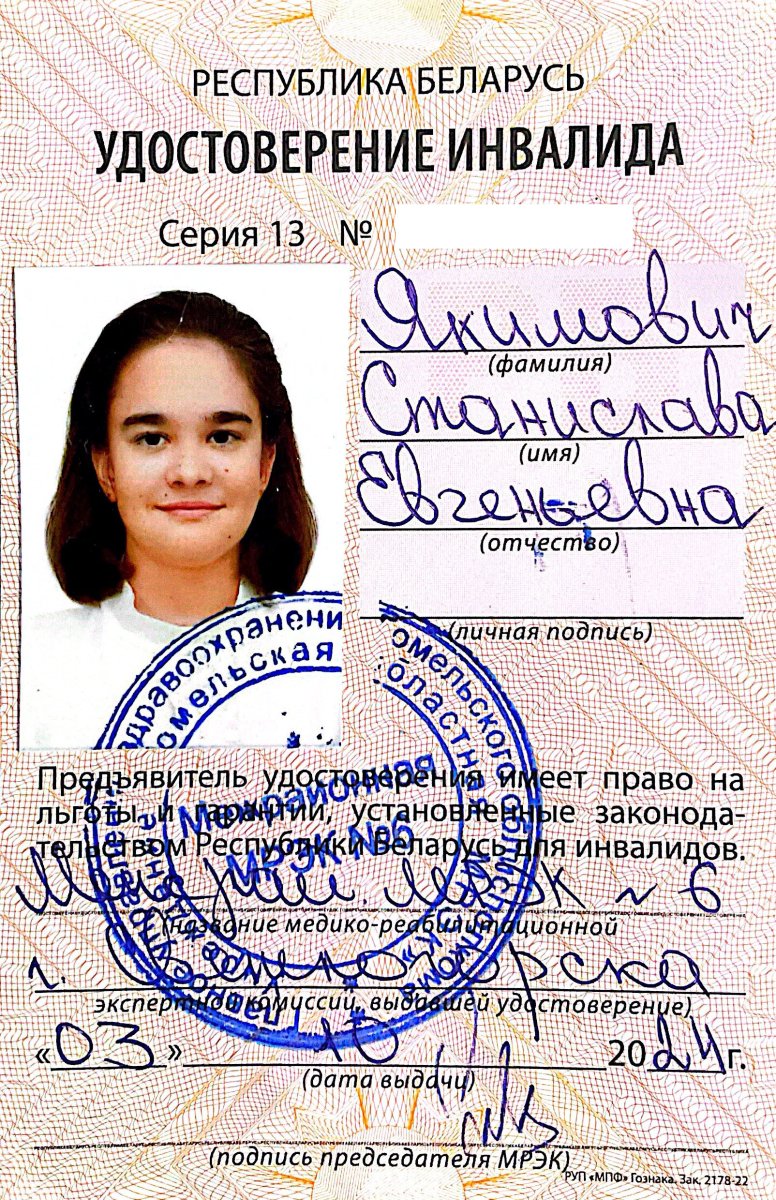 РЕСПУБЛИКА БЕЛАРУСЬ
УДОСТОВЕРЕНИЕ ИНВАЛИДА
Серия 13 №
Якимович
(фамилия)
Станислава
(имя)
Евгеньевна
(отчество)
(личная подпись)
здравоохранени Гомельского облисполкома
омельская областная
Межрайонная
МРЭК №6
Предъявитель удостоверения имеет право на
льготы и гарантии, установленные законода-
тельством Республики Беларусь для инвалидов.
МРЭК № 6
(название медико-реабилитационной
г. Светлогорска
экспертной комиссии, выдавшей удостоверение)
«03» 10 2024г.
(дата выдачи)
(подпись председателя МРЭК)
РУП «МПФ» Гознака. Зак. 2178-22